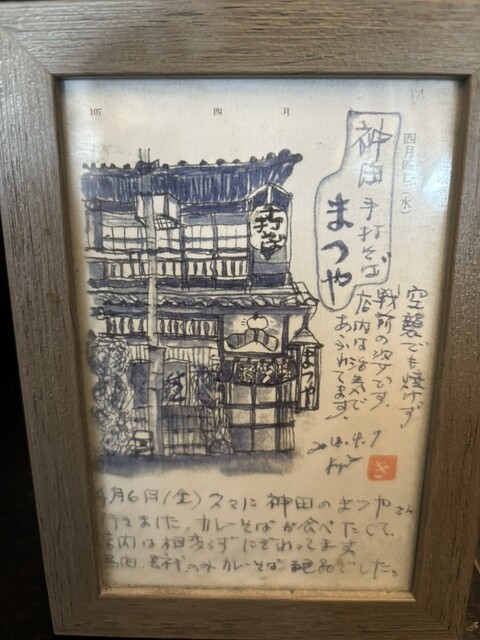 107 四 月
四月 日(水)
神田手打そば
まつや
手打そば
まつや
空襲でも焼けず
戦前の姿です。
店内は活気で
あふれてます。
4.7
4月6日(金)久々に神田のまつやさん
行きました。カレーそばが食べたくて、
店内は相変らずにぎわってます
鳥肉、長ネギのみカレーそば絶品でした。